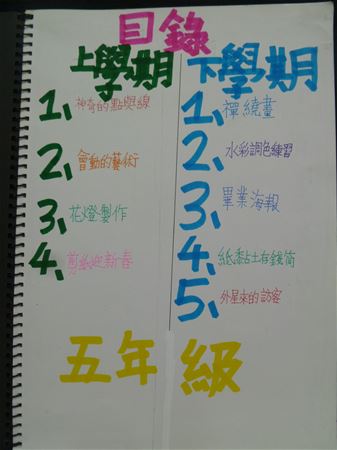 目錄
上學期
1、神奇的點與線
2、會動的藝術
3、花燈製作
4、剪紙迎新春
下學期
1、禪繞畫
2、水彩調色練習
3、畢業海報
4、紙黏土存錢筒
5、外星來的訪客
五年級